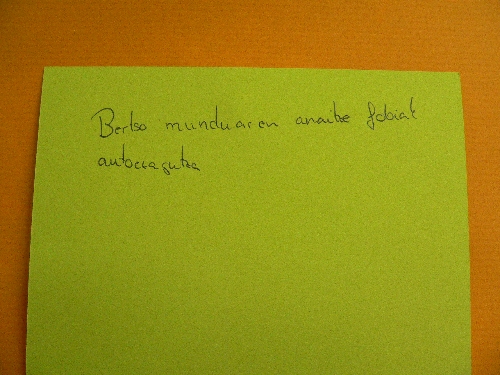 Bertso munduaren anaitze fobiak
autoezagutza